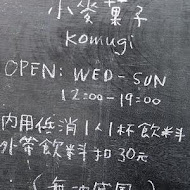 小麥菓子
komugi
OPEN: WED-SUN
12:00-19:00
內用低消1人1杯飲料
外帶飲料扣30元
(無